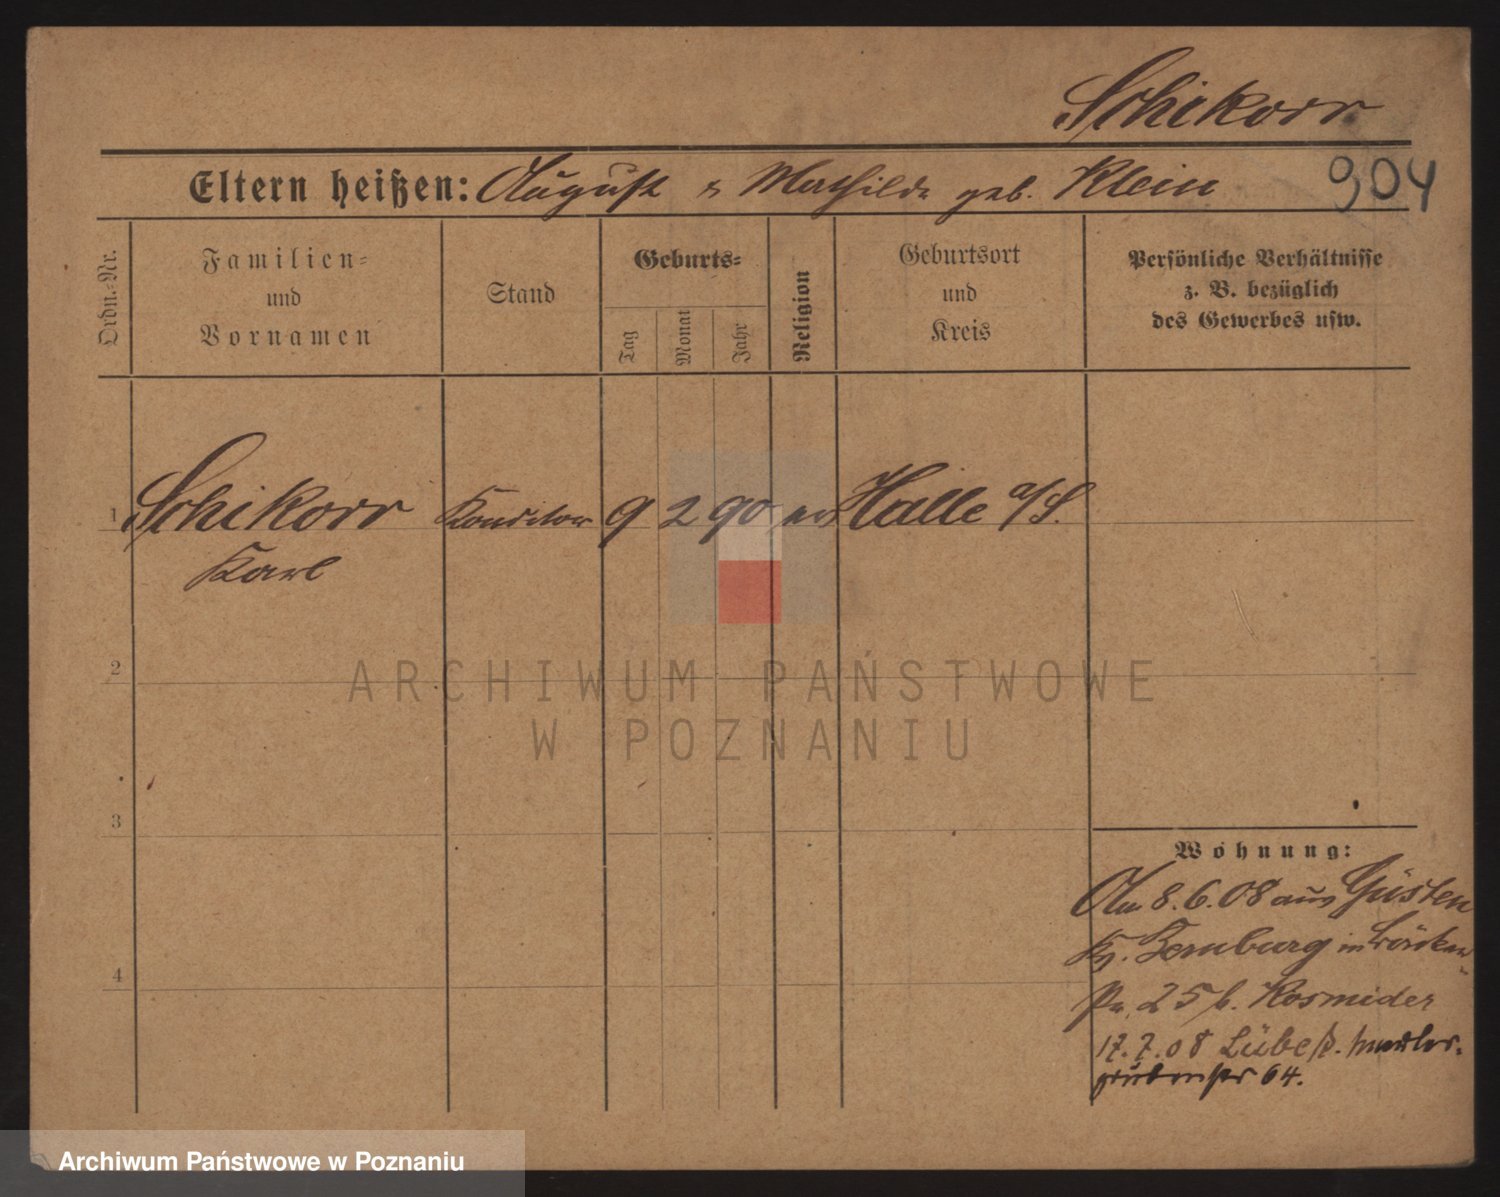 Schikorr
Eltern heißen: August & Mathilde geb. Klein 904
Ordn.-Nr.
Familien-
und
Vornamen
Stand
Geburts-
Tag
Monat
Jahr
Religion
Geburtsort
und
Kreis
Persönliche Verhältnisse
z. B. bezüglich
des Gewerbes usw.
1 Schikorr Konditor 9 2 90 ev Halle a/S.
Karl
2
ARCHIWUM PAŃSTWOWE
W POZNANIU
3
Wohnung:
8.6.08 aus Güsten
Kr. Bernburg in
25 b. Kosmider
17.7.08 Lübeck
64.
4
Archiwum Państwowe w Poznaniu